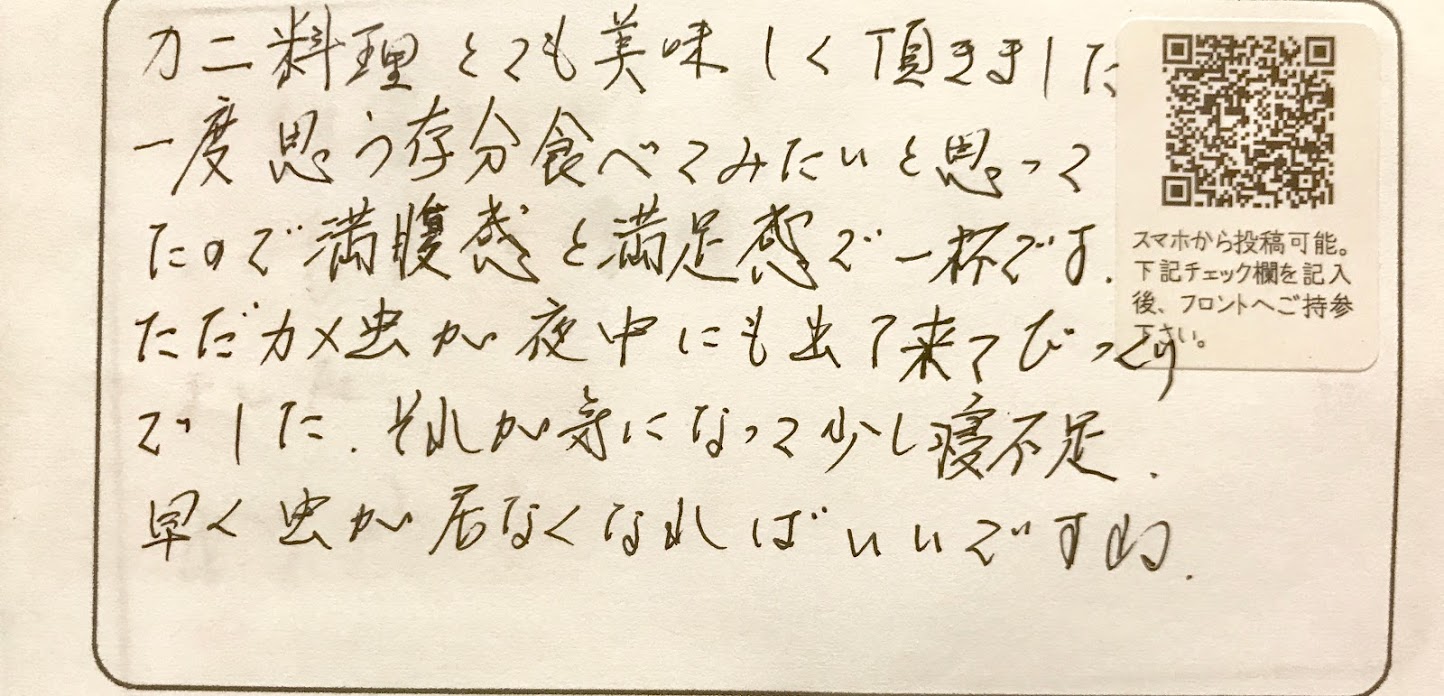 カニ料理とても美味しく頂きました
一度思う存分食べてみたいと思って
たので満腹感と満足感で一杯です.
ただカメ虫が夜中にも出て来てびっくり
でした.それが気になって少し寝不足.
早く虫が居なくなればいいですね.
スマホから投稿可能。
下記チェック欄を記入
後、フロントへご持参
下さい。